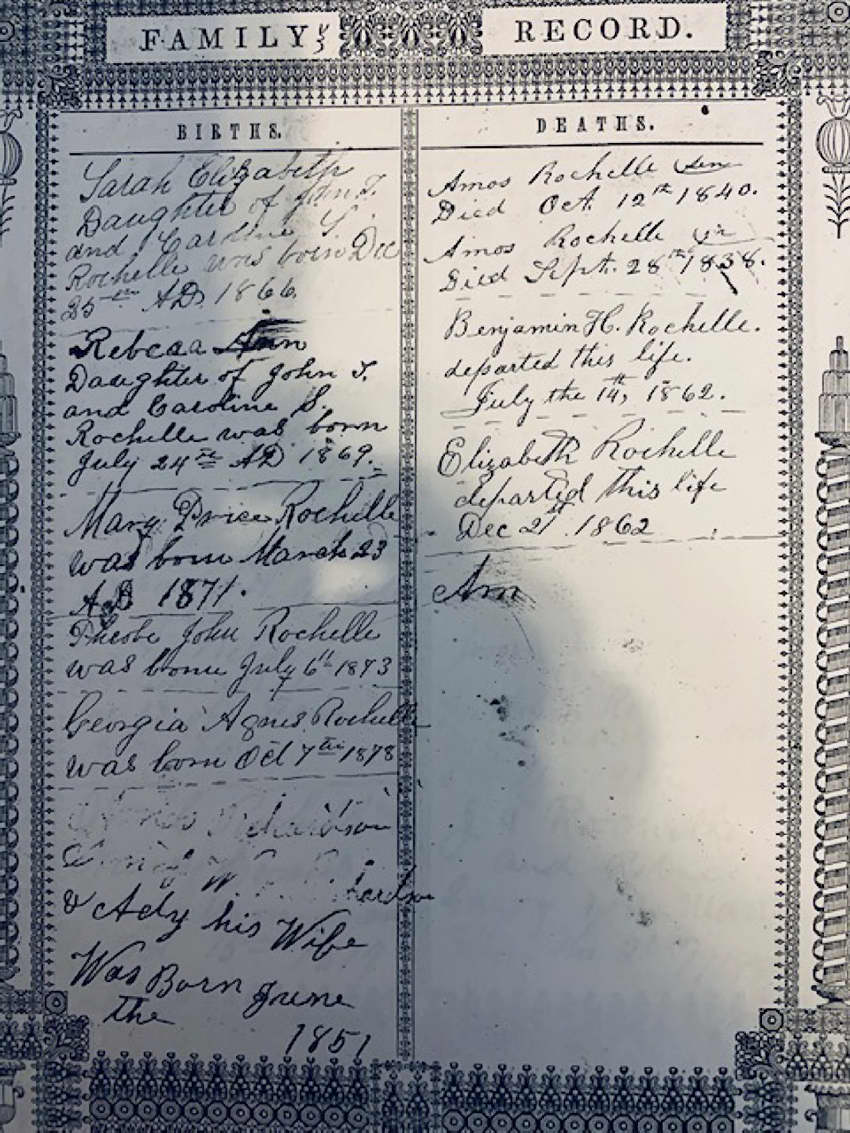 FAMILY RECORD.
BIRTHS.
Sarah Elizabeth
Daughter of John T.
and Caroline S.
Rochelle was born Dec
25th AD. 1866
Rebcaa Ann
Daughter of John T.
and Caroline S.
Rochelle was born
July 24th AD 1869.
Mary Price Rochelle
was born March 23
AD 1871.
Pheobe John Rochelle
was borne July 6th 1873
Georgia Agnes Rochelle
was born Oct 7th 1878
Richardson
W.
& Acly his Wife
Was Born June
the
1851
DEATHS.
Amos Rochelle Sen
Died Oct. 12th 1840.
Amos Rochelle Jr
Died Sept. 28th 1838.
Benjamin H. Rochelle.
departed this life.
July the 14th, 1862.
Elizabeth Rochelle
departed this life
Dec 21st 1862
Am